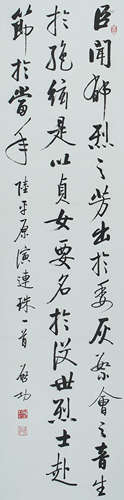 臣聞郁烈之芳出於委灰繁會之音生
於絕絃是以貞女要名於沒世烈士赴
節於當年
陸平原演連珠一首 啟功